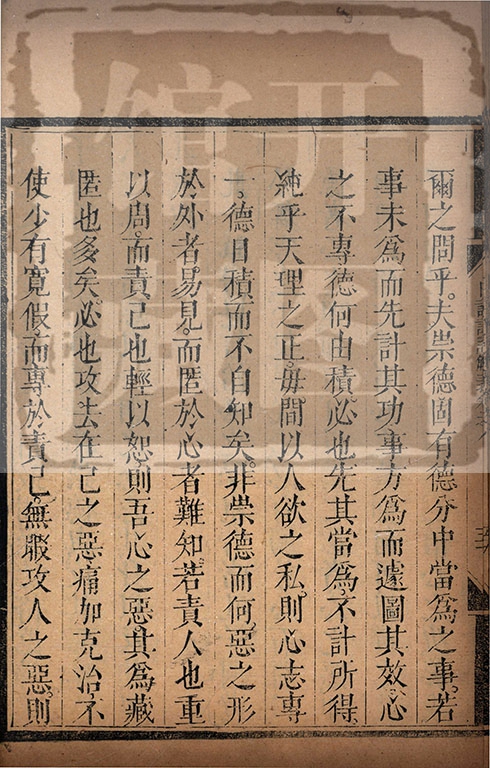 爾之問乎。夫崇德固有德分中當爲之事。若
事未爲而先計其功事方爲而遽圖其效心
之不專德何由積。必也先其當爲。不計所得
純乎天理之正。毋間以人欲之私。則心志專
一。德日積而不自知矣。非崇德而何。惡之形
於外者。易見。而匿於心者難知。若責人也重
以周。而責己也輕以恕則吾心之惡其爲藏
匿也多矣。必也攻去在己之惡痛加克治不
使少有寬假。而專於責己。無暇攻人之惡。則